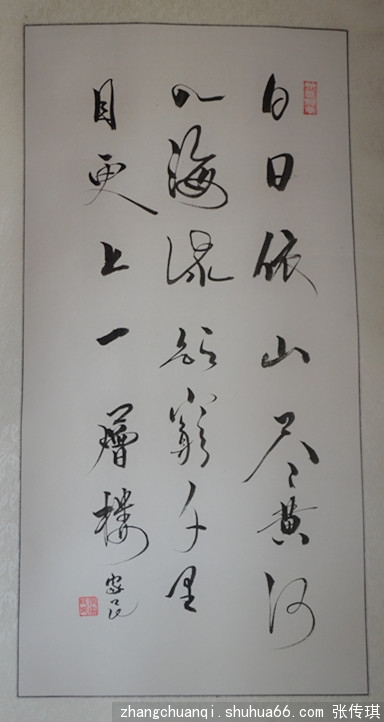 白日依山尽黄河
入海流欲窮千里
目更上一層楼
zhangchuanqi.shuhua66.com 张传琪